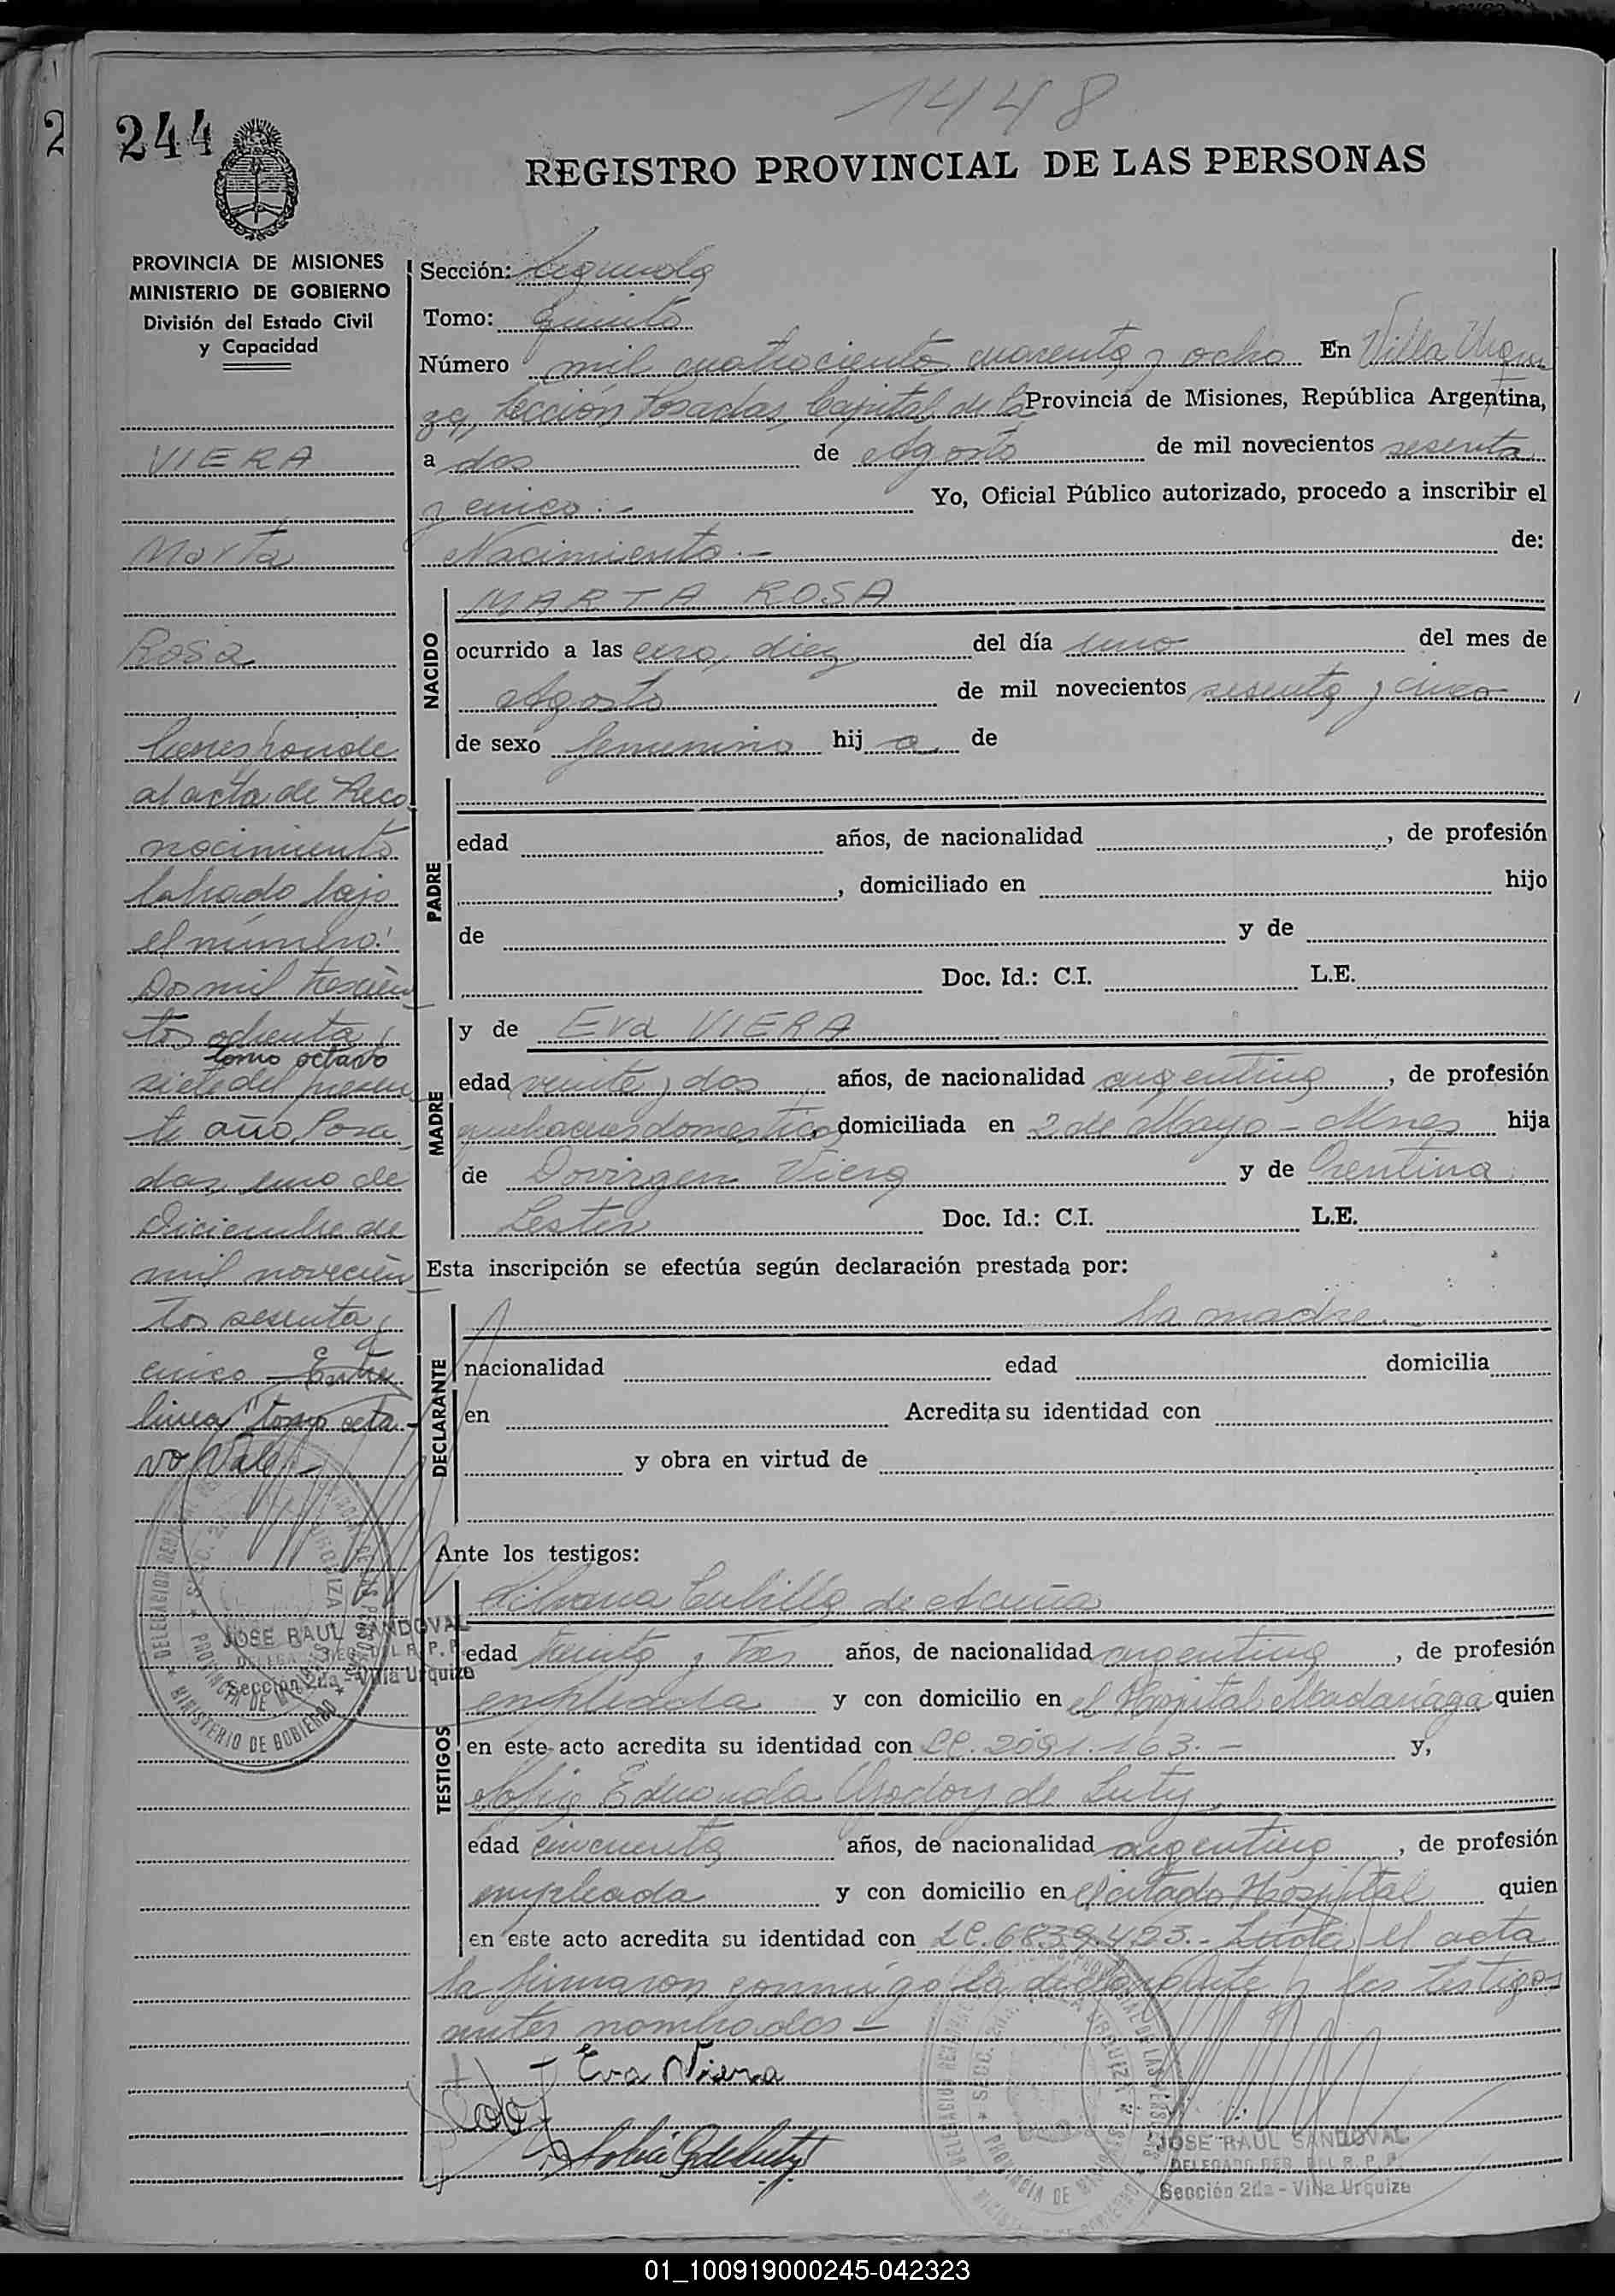 1448
244
REGISTRO PROVINCIAL DE LAS PERSONAS
PROVINCIA DE MISIONES
MINISTERIO DE GOBIERNO
División del Estado Civil
y Capacidad
VIERA
Marta
Rosa
Corresponde
al acta de Reco
nocimiento
labrado bajo
el número:
Dos mil trescien
tos ochenta y
tomo octavo
siete del presen
te año Posa
das, uno de
Diciembre de
mil novecien
tos sesenta y
cinco - Entre
linea "tomo octa-
vo Vale -
Sección: Segunda
Tomo: Quinto
Número mil cuatrocientos cuarenta y ocho En Villa Urqui
za, Sección Posadas, Capital de la Provincia de Misiones, República Argentina,
a dos de Agosto de mil novecientos sesenta
y cinco.- Yo, Oficial Público autorizado, procedo a inscribir el
Nacimiento.- de:
NACIDO
MARTA ROSA
ocurrido a las cero, diez del día uno del mes de
Agosto de mil novecientos sesenta y cinco
de sexo femenino hij a de
PADRE
edad años, de nacionalidad , de profesión
, domiciliado en hijo
de y de
Doc. Id.: C.I. L.E.
MADRE
y de Eva VIERA
edad veinte y dos años, de nacionalidad argentina, de profesión
quehaceres domesticos, domiciliada en 2 de Mayo - Mnes hija
de Dovirgen Viera y de
Doc. Id.: C.I. L.E.
Esta inscripción se efectúa según declaración prestada por:
DECLARANTE
la madre.-
nacionalidad edad domicilia
en Acredita su identidad con
y obra en virtud de
Ante los testigos:
TESTIGOS
Silvana Cubilla de Acuña
edad treinta y tres años, de nacionalidad argentina, de profesión
empleada y con domicilio en el Hospital Madariaga quien
en este acto acredita su identidad con LC. 2091.163.- y,
Sofia Eduarda Godoy de Luty
edad cincuenta años, de nacionalidad argentina, de profesión
empleada y con domicilio en el citado Hospital quien
en este acto acredita su identidad con LC. 6839.423.- Leida el acta
la firmaron conmigo la declarante y los testigos
antes nombrados -
- Eva Viera
JOSE RAUL SANDOVAL
DELEGADO REG. DEL R. P. P.
Sección 2da - Villa Urquiza
JOSE RAUL SANDOVAL
DELEGADO REG. DEL R. P. P.
Sección 2da - Villa Urquiza
01_100919000245-042323